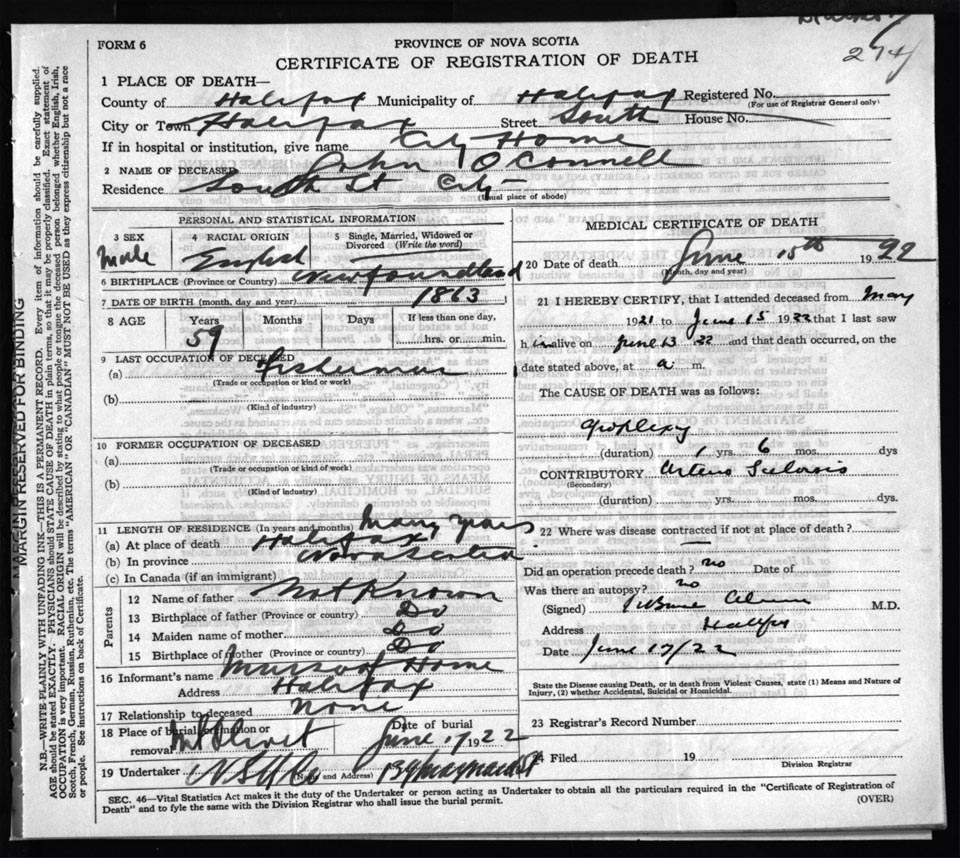 FORM 6
PROVINCE OF NOVA SCOTIA
274
CERTIFICATE OF REGISTRATION OF DEATH
1 PLACE OF DEATH—
County of Halifax Municipality of Halifax Registered No.
(For use of Registrar General only)
City or Town Halifax Street South House No.
If in hospital or institution, give name City Home
2 NAME OF DECEASED John O'Connell
Residence South St City
(Usual place of abode)
PERSONAL AND STATISTICAL INFORMATION
3 SEX 4 RACIAL ORIGIN 5 Single, Married, Widowed or Divorced (Write the word)
Male English
6 BIRTHPLACE (Province or Country) Newfoundland
7 DATE OF BIRTH (month, day and year) 1863
8 AGE Years Months Days If less than one day,
59 hrs. or min.
9 LAST OCCUPATION OF DECEASED
(a) Fisherman
(Trade or occupation or kind or work)
(b)
(Kind of industry)
10 FORMER OCCUPATION OF DECEASED
(a)
(Trade or occupation or kind or work)
(b)
(Kind of industry)
11 LENGTH OF RESIDENCE (In years and months) Many years
(a) At place of death Halifax
(b) In province Nova Scotia
(c) In Canada (if an immigrant)
Parents
12 Name of father Not Known
13 Birthplace of father (Province or country) Do
14 Maiden name of mother Do
15 Birthplace of mother (Province or country) Do
16 Informant's name Home
Address Halifax
17 Relationship to deceased none
18 Place of burial, cremation or removal Mt Olivet Date of burial June 17 1922
19 Undertaker (Name and Address) Maynard St
MEDICAL CERTIFICATE OF DEATH
20 Date of death June 15th 1922
(Month, day and year)
21 I HEREBY CERTIFY, that I attended deceased from May
1921 to June 15 1922 that I last saw
him alive on June 13 22 and that death occurred, on the
date stated above, at a m.
The CAUSE OF DEATH was as follows:
Apoplexy
(duration) 1 yrs. 6 mos. dys
CONTRIBUTORY Arterio Sclerosis
(Secondary)
(duration) yrs. mos. dys.
22 Where was disease contracted if not at place of death?
Did an operation precede death? no Date of
Was there an autopsy? no
(Signed) M.D.
Address Halifax
Date June 17/22
State the Disease causing Death, or in death from Violent Causes, state (1) Means and Nature of
Injury, (2) whether Accidental, Suicidal or Homicidal.
23 Registrar's Record Number
24 Filed 19
Division Registrar
SEC. 46—Vital Statistics Act makes it the duty of the Undertaker or person acting as Undertaker to obtain all the particulars required in the "Certificate of Registration of
Death" and to fyle the same with the Division Registrar who shall issue the burial permit.
(OVER)
MARGIN RESERVED FOR BINDING
N.B.—WRITE PLAINLY WITH UNFADING INK—THIS IS A PERMANENT RECORD. Every item of information should be carefully supplied.
AGE should be stated EXACTLY. PHYSICIANS should STATE CAUSE OF DEATH in plain terms, so that it may be properly classified. Exact statement of
OCCUPATION is very important. RACIAL ORIGIN will be described by stating to what people or tongue the deceased person belonged whether English, Irish,
Scotch, French, German, Russian, Ruthenian, etc. The terms "AMERICAN" OR "CANADIAN" MUST NOT BE USED as they express citizenship but not a race
or people. See instructions on back of Certificate.